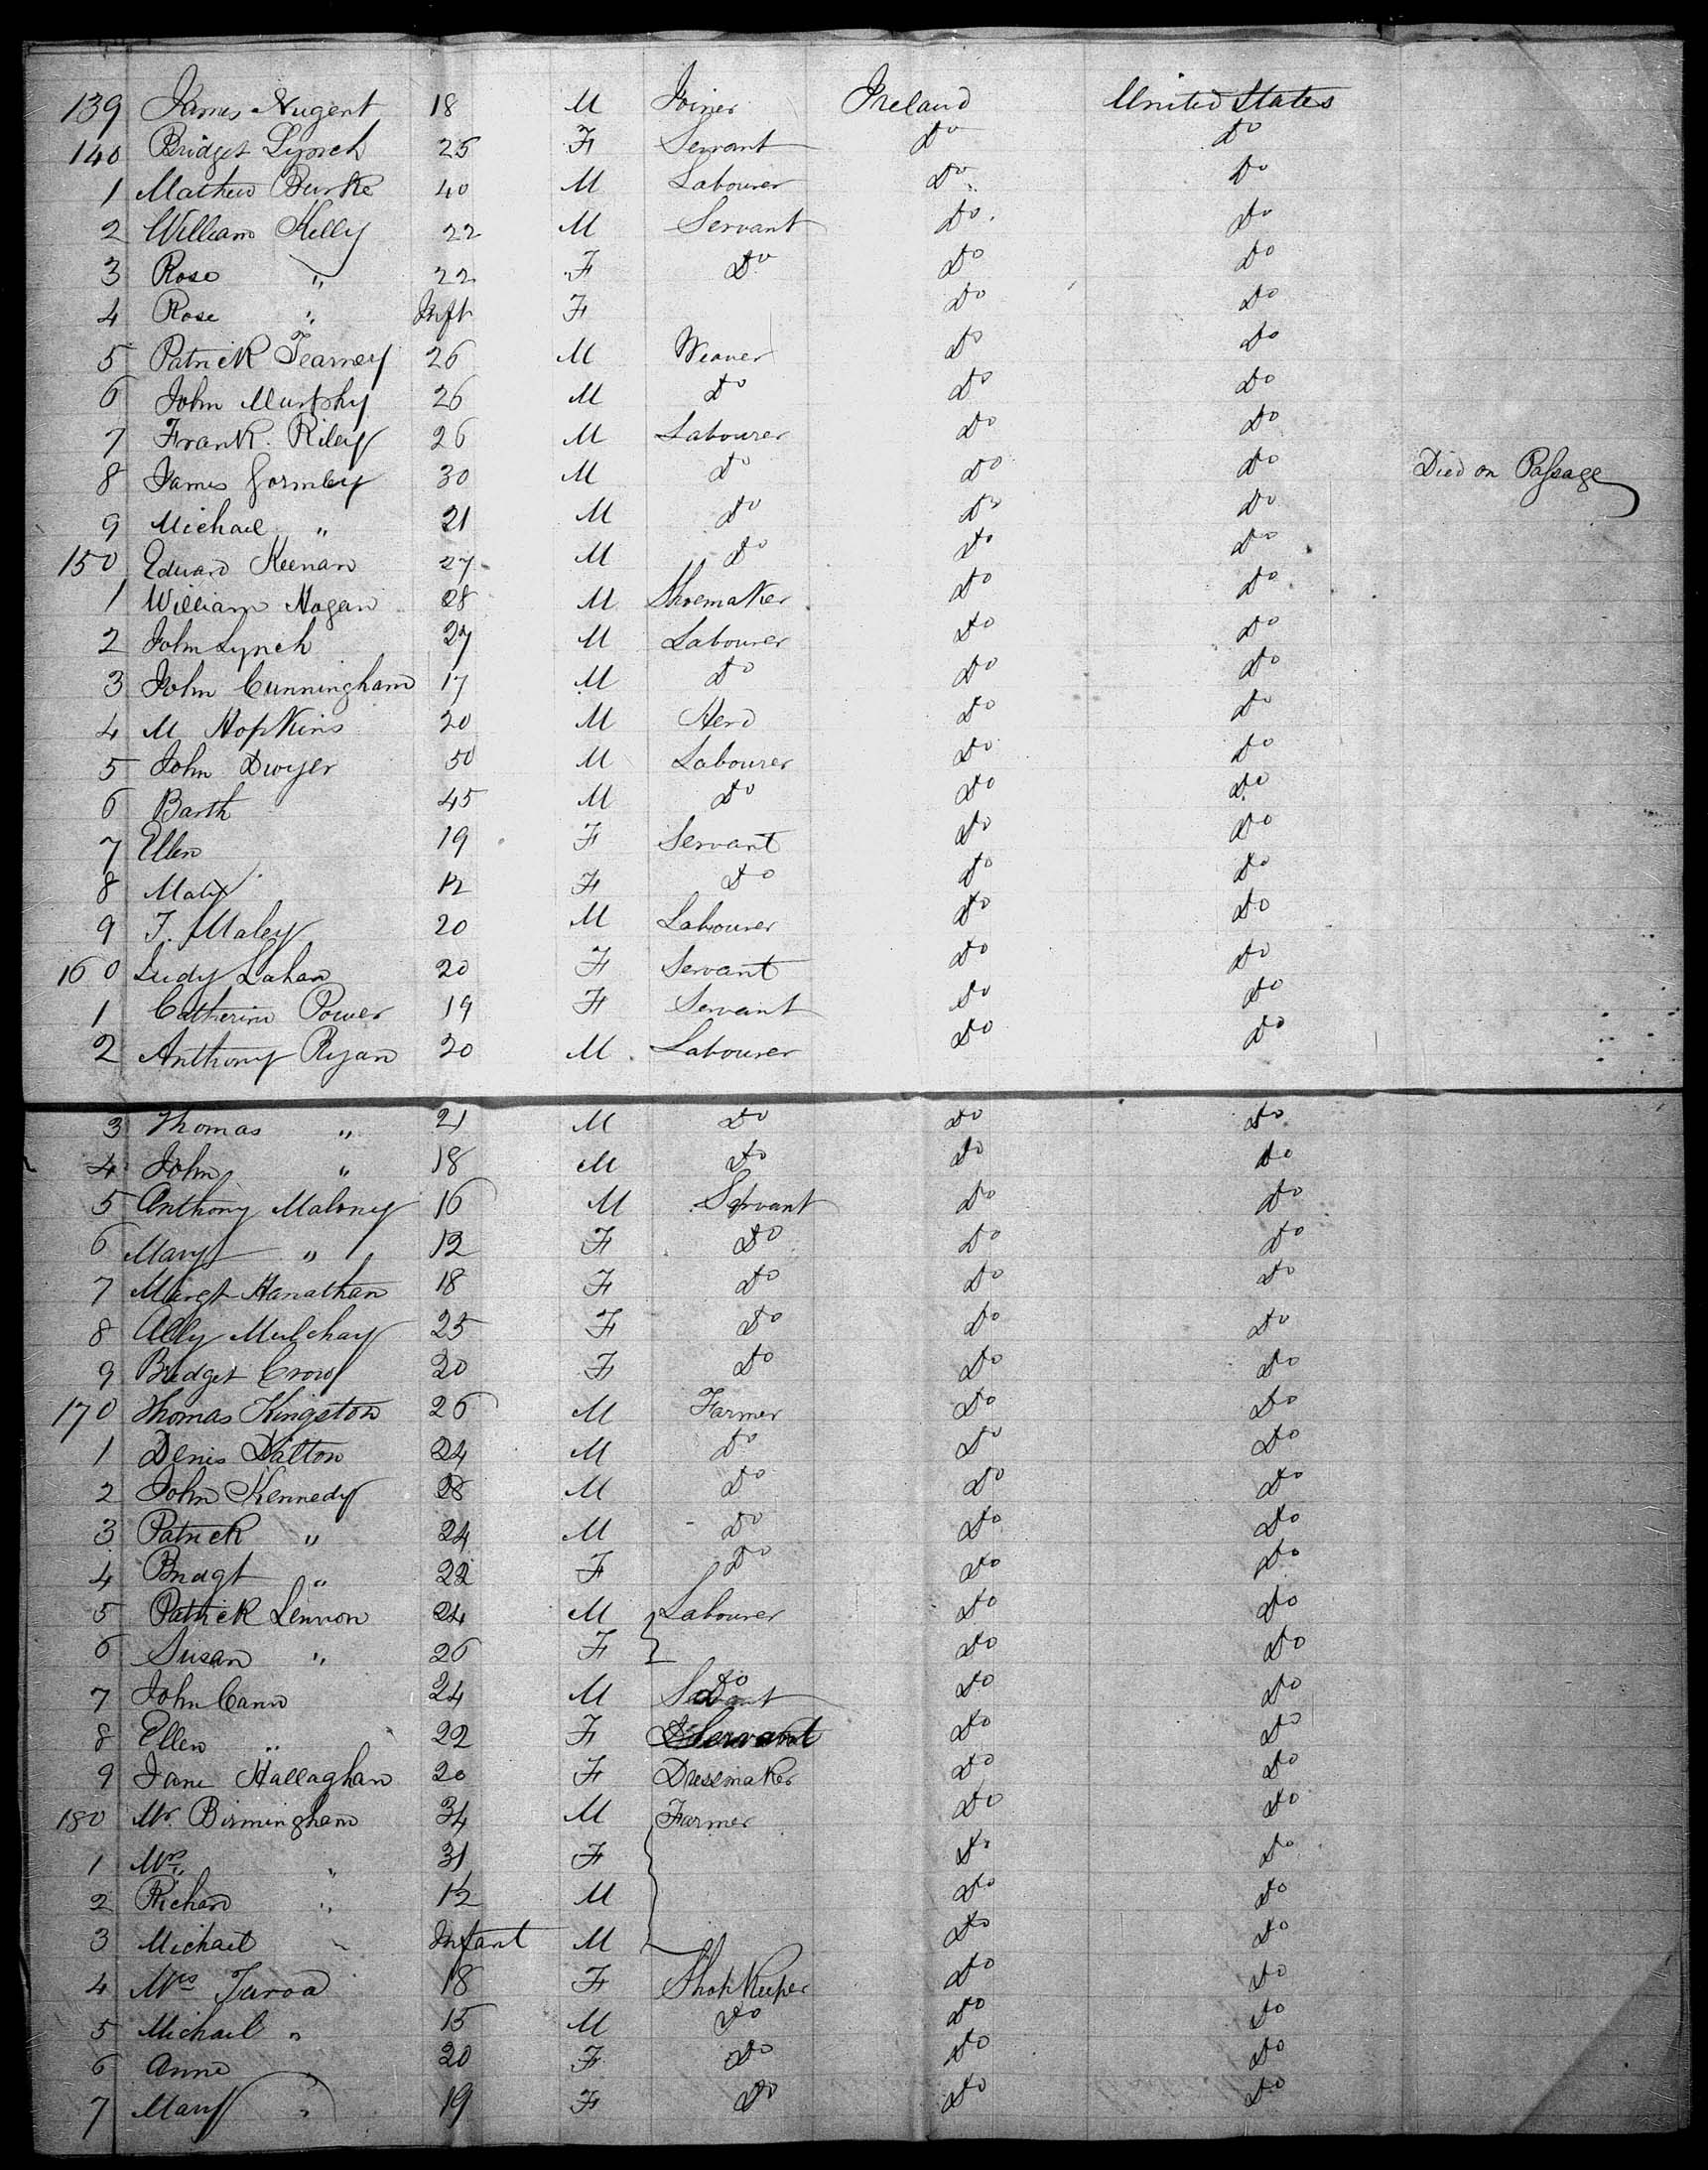 139 James Nugent 18 M Joiner Ireland United States
140 Bridget Lynch 25 F Servant Do Do
1 Mathew Burke 40 M Labourer Do Do
2 William Kelly 22 M Servant Do Do
3 Rose " 22 F Do Do Do
4 Rose " Inft F Do Do
5 Patrick 26 M Weaver Do Do
6 John Murphy 26 M Do Do Do
7 Frank Riley 26 M Labourer Do Do
8 James Gormley 30 M Do Do Do Died on Passage
9 Michael " 21 M Do Do Do
150 Edward Keenan 27 M Do Do Do
1 William Hogan 28 M Shoemaker Do Do
2 John Lynch 27 M Labourer Do Do
3 John Cunningham 17 M Do Do Do
4 M Hopkins 20 M Herd Do Do
5 John Dwyer 50 M Labourer Do Do
6 Barth 45 M Do Do Do
7 Ellen 19 F Servant Do Do
8 12 F Do Do Do
9 T. Maley 20 M Labourer Do Do
160 Judy Lahan 20 F Servant Do Do
1 Catherine Power 19 F Servant Do Do
2 Anthony Ryan 20 M Labourer Do Do
3 Thomas " 21 M Do Do Do
4 John " 18 M Do Do Do
5 Anthony Malony 16 M Servant Do Do
6 Mary " 12 F Do Do Do
7 Margt Hanathan 18 F Do Do Do
8 Ally Mulchay 25 F Do Do Do
9 Bridget Crow 20 F Do Do Do
170 Thomas Kingston 26 M Farmer Do Do
1 Denis Dalton 24 M Do Do Do
2 John Kennedy 28 M Do Do Do
3 Patrick " 24 M Do Do Do
4 Bridgt " 22 F Do Do Do
5 Patrick Lennon 24 M Labourer Do Do
6 Susan " 26 F Do Do
7 John Cann 24 M Do Do Do
8 Ellen " 22 F Servant Do Do
9 Jane Hallaghan 20 F Dressmaker Do Do
180 Mr. Birmingham 34 M Farmer Do Do
1 Mrs " 31 F Do Do
2 Richard " 12 M Do Do
3 Michael " Infant M Do Do
4 Mrs 18 F Shop Keeper Do Do
5 Michael " 15 M Do Do Do
6 Anne " 20 F Do Do Do
7 Mary " 19 F Do Do Do